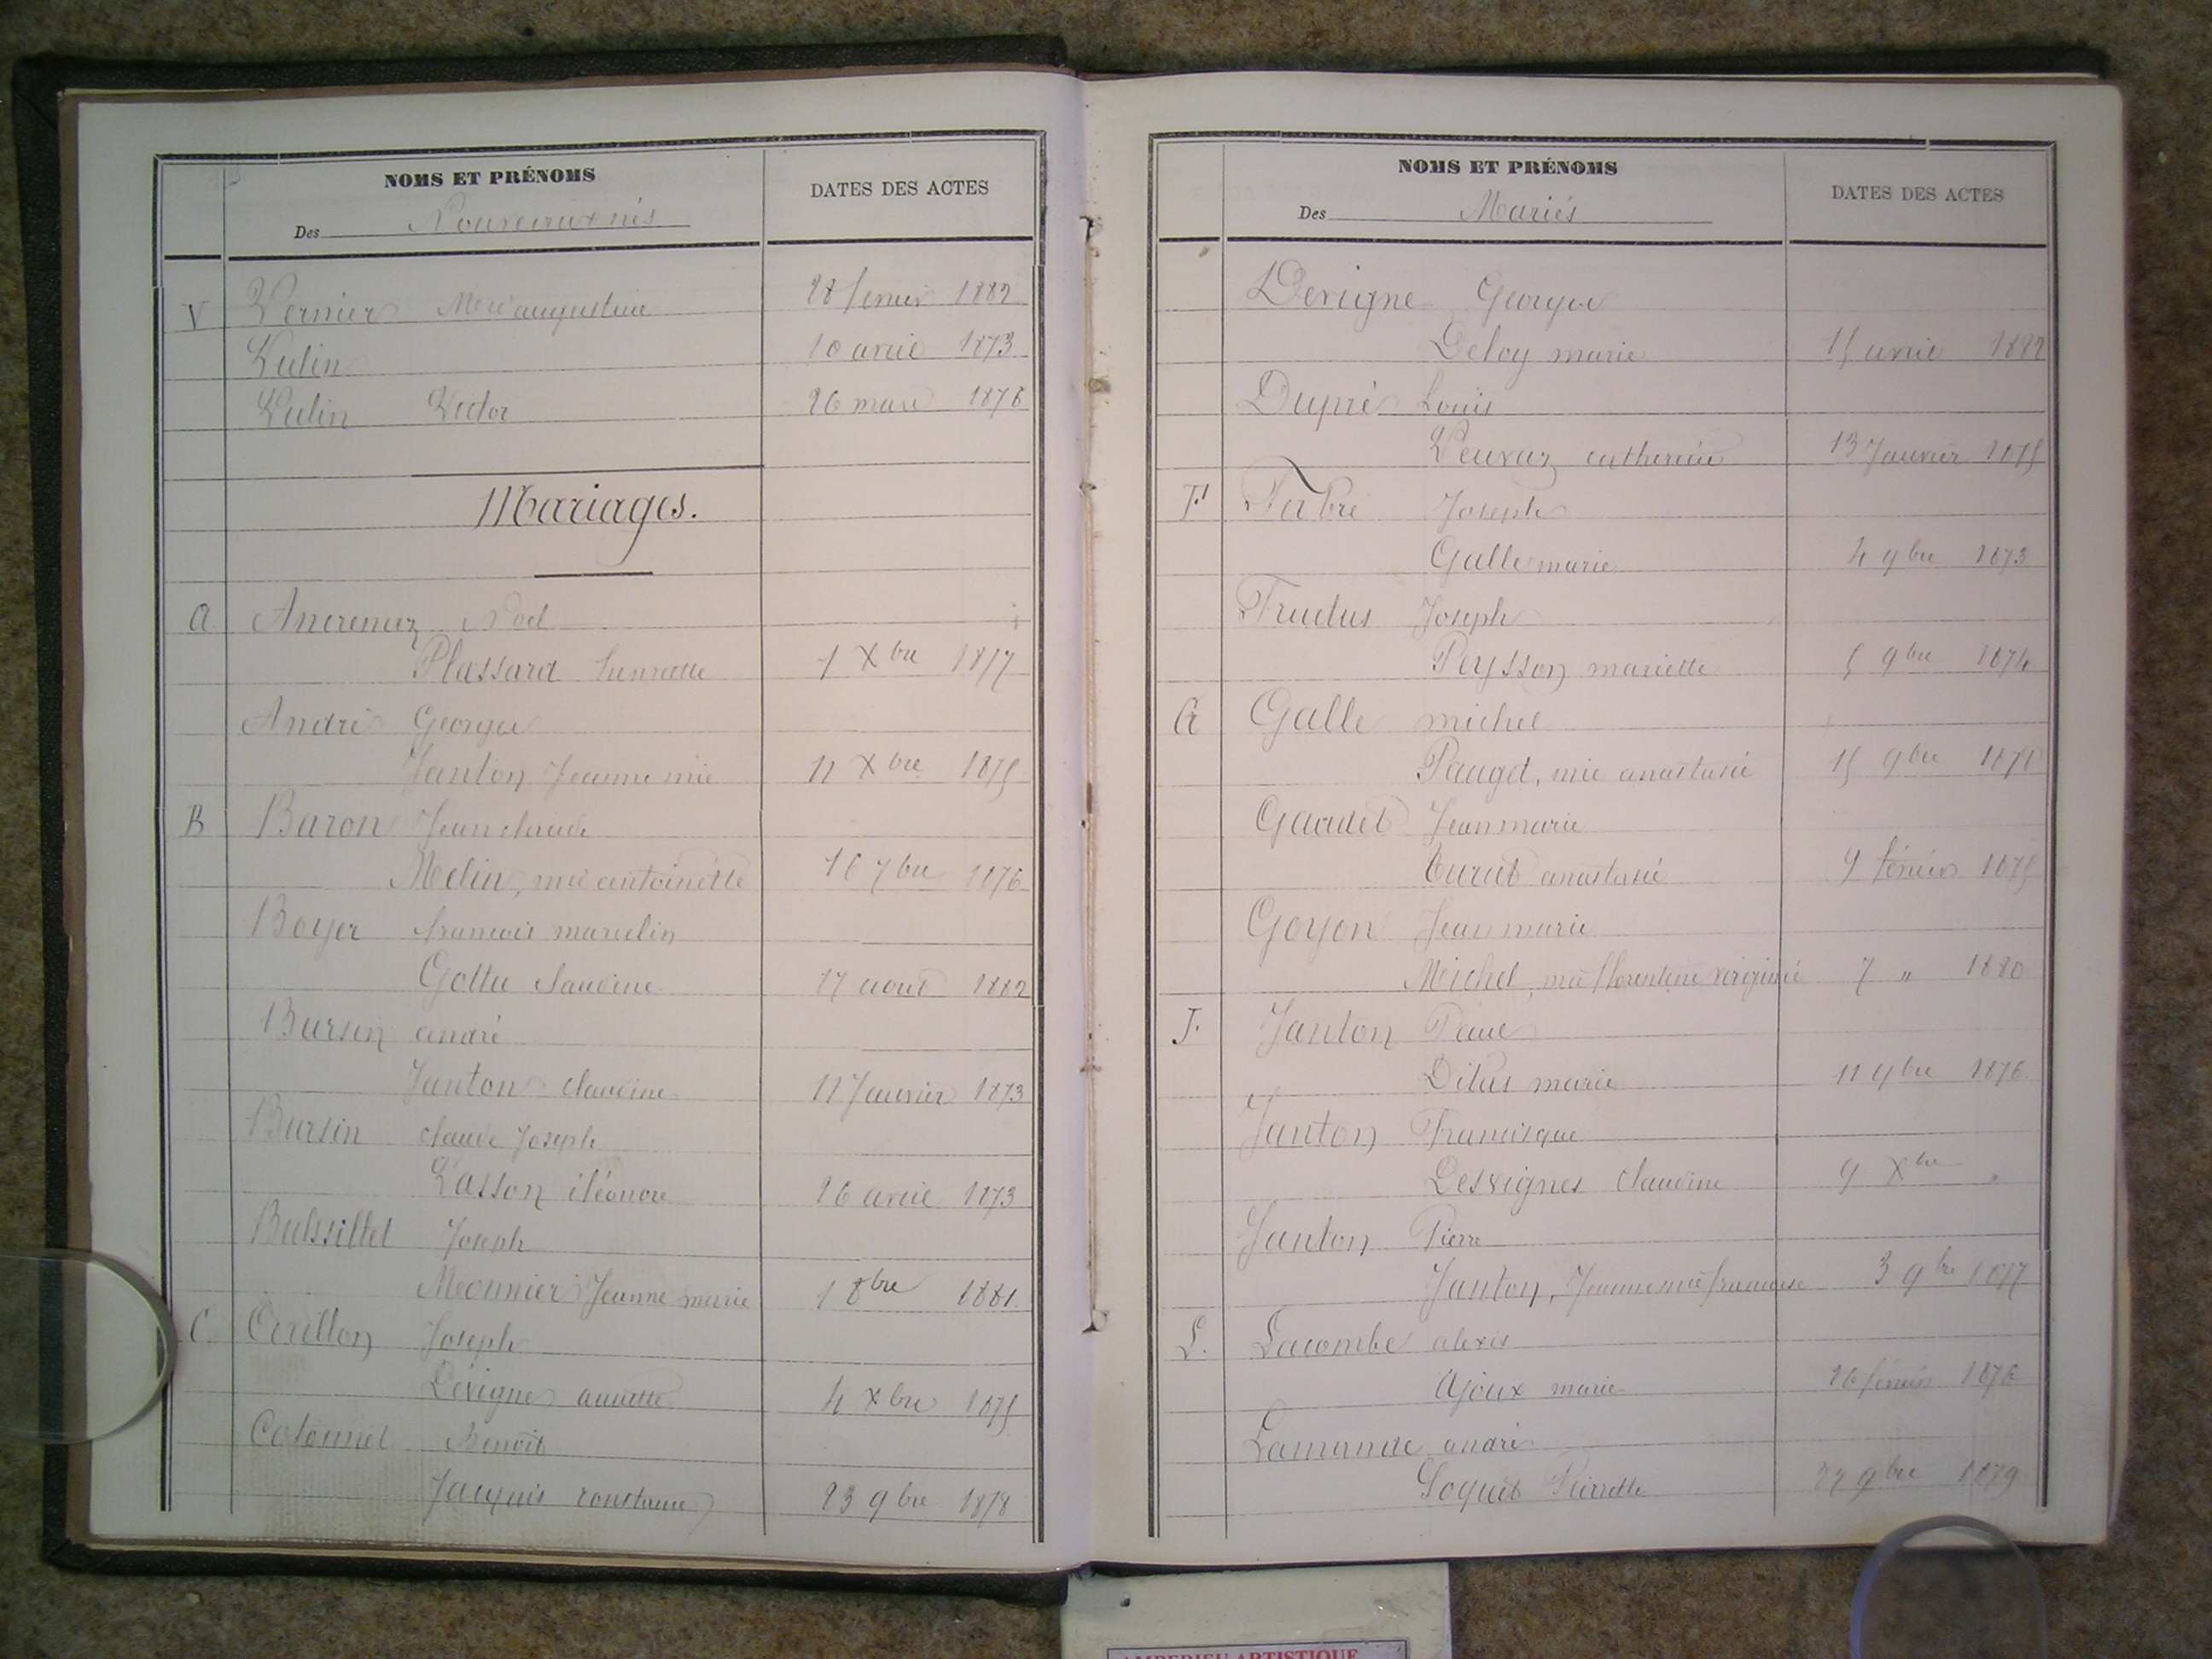 NOMS ET PRÉNOMS
DATES DES ACTES
Des Nouveaux nés
V Vernier Mie augustine 28 février 1882
Vulin 10 avril 1873
Vulin Victor 26 mars 1876
Mariages.
A Ancrenaz Noel
Plassard henriette 1 Xbre 1877
André George
Janton Jeanne mie 11 Xbre 1875
B Baron Jean claude
Melin, mie antoinette 16 7bre 1876
Boyer francois marcelin
Gottu claudine 17 aout 1882
Bursin andré
Janton claudine 11 Janvier 1873
Bursin claude Joseph
Vasson éléonore 26 avril 1873
Bussillet Joseph
Meunier Jeanne marie 1 8bre 1881
C Corillon Joseph
Dévigne annette 4 xbre 1875
Colonnel Benoit
Jacquis constance 23 9bre 1878
NOMS ET PRÉNOMS
DATES DES ACTES
Des Mariés
Devigne George
Deloy marie 15 avril 1882
Dupré Louis
Veuvaz catherine 13 Janvier 1875
F Fabre Joseph
Galle marie 4 9bre 1873
Fructus Joseph
Peysson mariette 5 9bre 1874
G Galle michel
Pauget, mie anastasie 15 9bre 1878
Gaudet Jean marie
Curut anastasie 9 février 1875
Goyon Jean marie
Michel, mie florentine virginie 7 " 1880
J. Janton Paul
Ditus marie 11 9bre 1876
Janton Francisque
Desvignes claudine 9 Xbre "
Janton Pierre
Janton, Jeanne mie francoise 3 9bre 1877
L. Lacombe alexis
Ajoux marie 26 février 1876
Lamande andré
Soquet Pierrette 22 9bre 1879